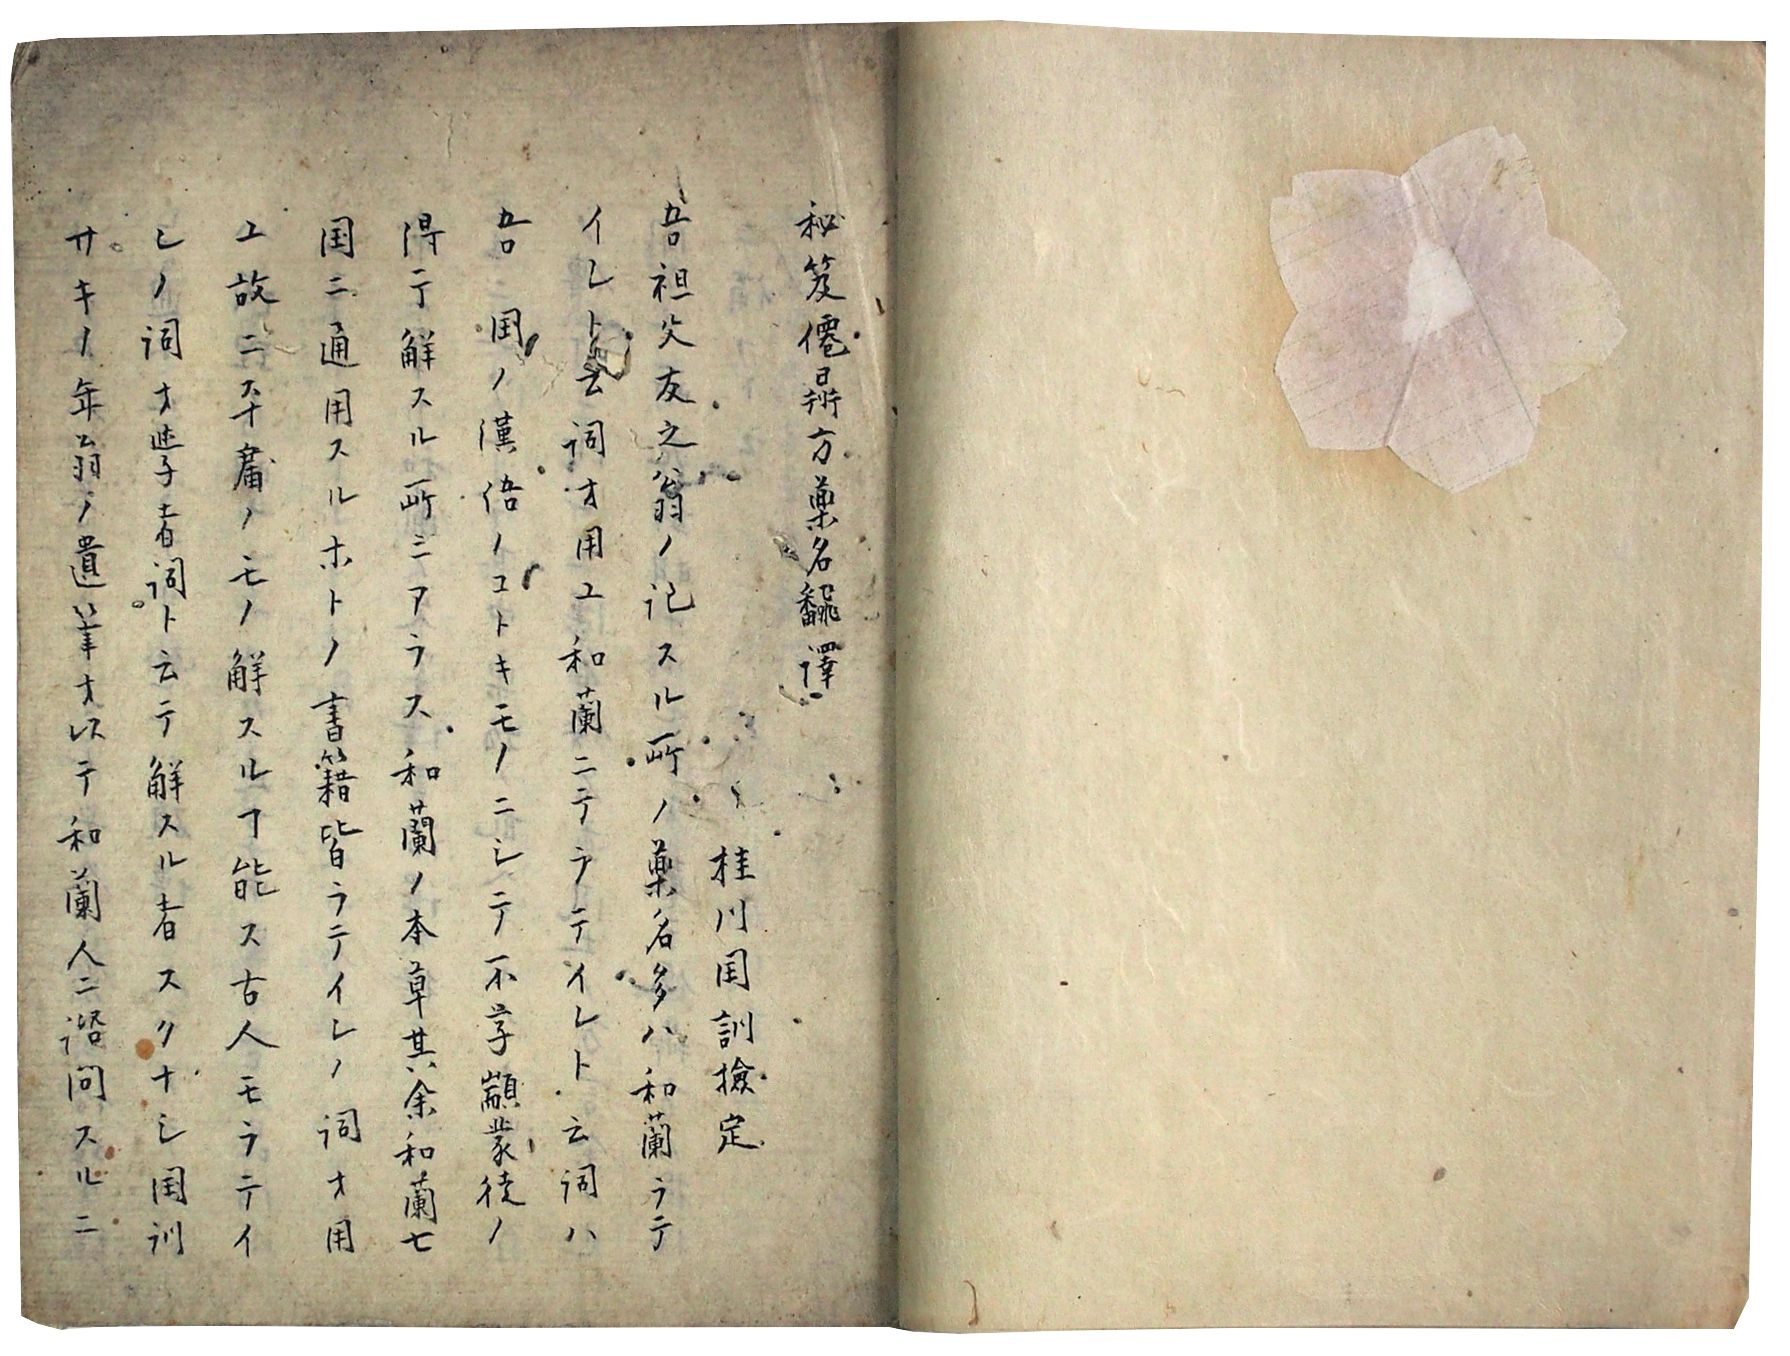 秘笈僊尋方薬名飜譯
桂川国訓撿定
吾祖父友之翁ノ記スル所ノ薬名多ハ和蘭ラテ
イレト云詞オ用ユ和蘭ニテラテイレト云詞ハ
吾国ノ漢語ノコトキモノニシテ不学顓蒙徒ノ
得テ解スル所ニアラス和蘭ノ本草其余和蘭七
国ニ通用スルホトノ書籍皆ラテイレノ詞オ用
ユ故ニ卒庸ノモノ解スルヿ能ス古人モラテイ
レノ詞オ学者詞ト云テ解スル者スクナシ国訓
サキノ年翁ノ遺筆オ以テ和蘭人ニ諮問スルニ